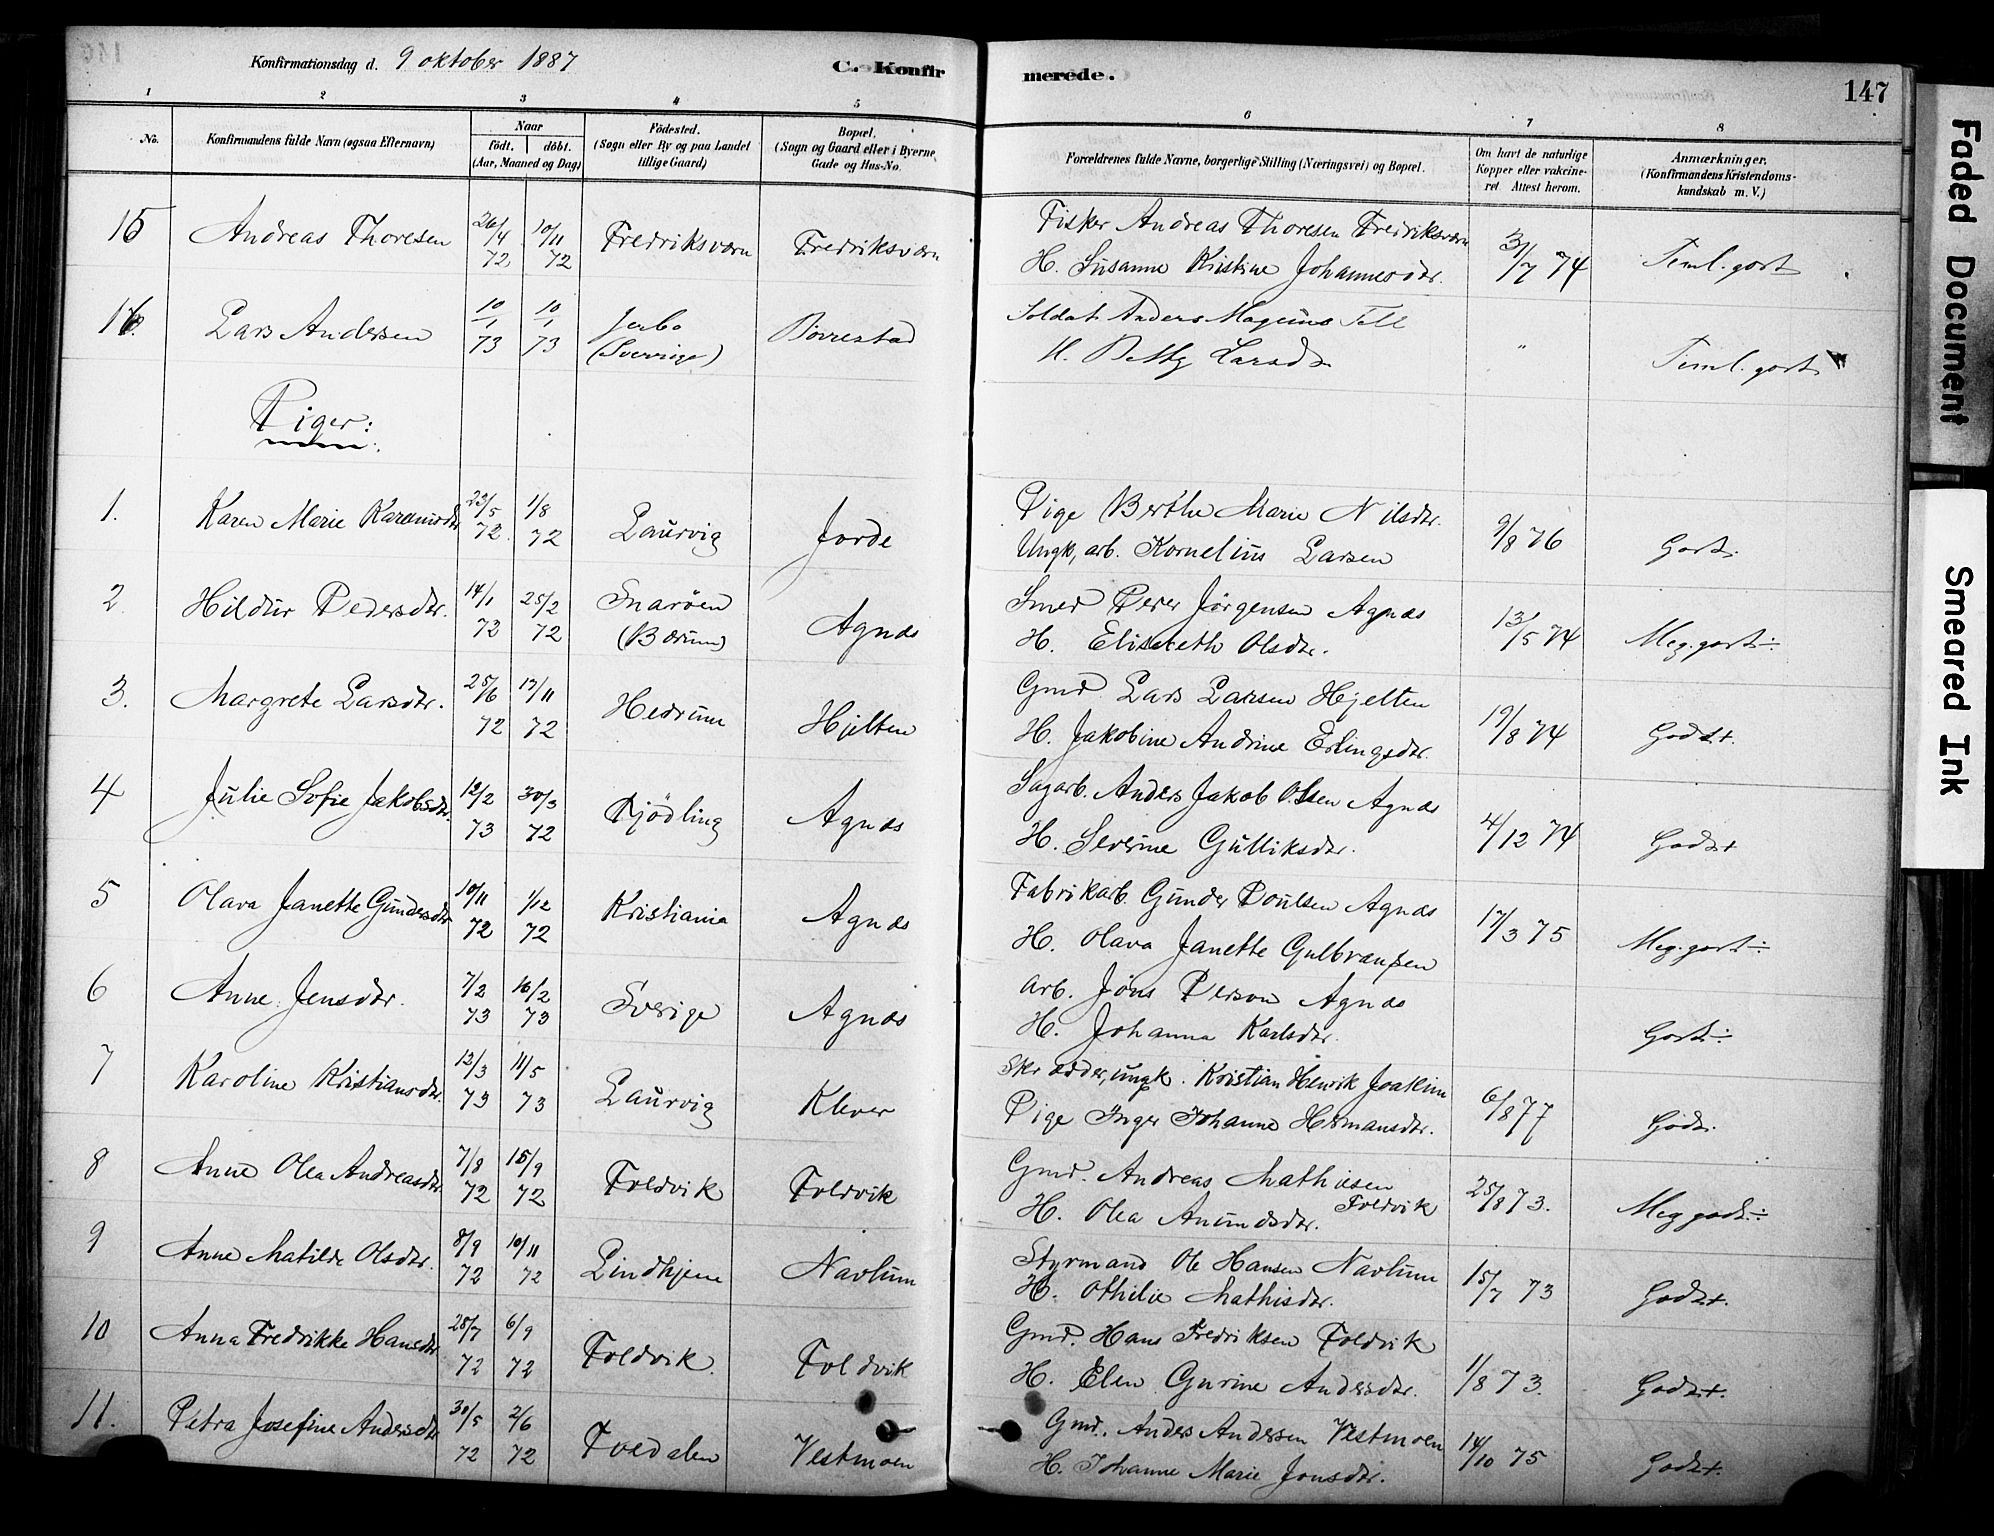 Konfirmationsdag d. 9 oktober 1887
C. Konfirmerede.
147
1 2 3 4 5 6 7 8
No.
Konfirmandens fulde Navn (ogsaa Efternavn)
Naar
födt. döbt.
(Aar, Maaned og Dag)
Födested.
(Sogn eller By og paa Landet
tillige Gaard)
Bopæl.
(Sogn og Gaard eller i Byerne
Gade og Hus-No.
Forældrenes fulde Navne, borgerlige Stilling (Næringsvei) og Bopæl.
Om havt de naturlige
Kopper eller vakcine-
ret Attest herom.
Anmærkninger.
(Konfirmandens Kristendoms-
kundskab m. V.)
15 Andreas Thoresen 26/4 72 10/11 72 Fredriksværn Fredriksværn
Fisker Andreas Thoresen Fredriksværn
H. Susanne Kristine Johannesdtr. 3/7 74 Teml. godt
16. Lars Andersen 10/1 73 10/1 73 Jerbo (Sverrige) Borrestad
Soldat Anders Magnus Tell
H. Betty Larsd " Teml. godt
Piger:
1. Karen Marie 23/5 72. 1/8 72 Laurvig Jorde
Pige Berthe Marie Nilsdtr.
Ungk, arb. Kornelius Larsen 9/8 76 Godt.
2. Hildur Pedersdtr. 14/1 72 25/2 72 Snarøen (Bærum) Agnæs
Smed Peder Jörgensen Agnæs
H. Elisabeth Olsdtr. 13/5 74 Meg. godt ÷
3. Margrete Larsdtr. 25/6 72 17/11 72 Hedrum Hjelten
Gmd Lars Larsen Hjelten
H. Jakobine Andrine Erlingsdtr. 19/8 74 Godt+.
4 Julie Sofie Jakobsdtr. 12/2 73 30/3 72 Kjödling Agnæs
Sagarb. Anders Jakob Olsen Agnæs
H. Severine Gulliksdtr. 4/12 74 Godt+
5 Olava Janette Gundersdtr 10/11 72 1/12 72 Kristiania Agnæs
Fabrikarb. Gunder Poulsen Agnæs
H. Olava Janette Gulbransen 17/3 75 Meg. godt ÷
6 Anne Jensdtr. 7/2 73 16/2 73 Sverige Agnæs
Arb. Jöns Person Agnæs
H. Johanna Karlsdtr. Godt ÷
7 Karoline Kristiansdtr. 13/3 73 11/5 73 Laurvig Klever
Skrædder, ungk. Kristian Henrik Joakim
Pige Inger Johanne Hermansdtr. 6/8 77 Godt.
8 Anne Olea Andreasdtr 7/8 72 15/9 72 Foldvik Foldvik
Gmd. Andreas Mathiesen
Foldvik
H. Olea Anundsdtr. 25/8 73. Meg godt ÷
9 Anne Matilde Olsdtr. 8/9 72 10/11 72 Lindhjem Navlum
Styrmand Ole Hansen Navlum
H. Othilie Mathisdtr. 15/7 73 Godt+.
10 Anna Fredrikke Hansdtr 28/7 72 6/9 72 Foldvik. Foldvik
Gmd. Hans Fredriksen Foldvik
H. Elen Gurine Andersdtr. 1/8 73. Godt+.
11. Petra Josefine Andersdtr 30/5 72 2/6 72 Tvedalen Vestmoen
Gmd. Anders Andersen Vestmoen
H. Johanne Marie Jonsdtr. 14/10 75 Godt+.
Faded Document
Smeared Ink